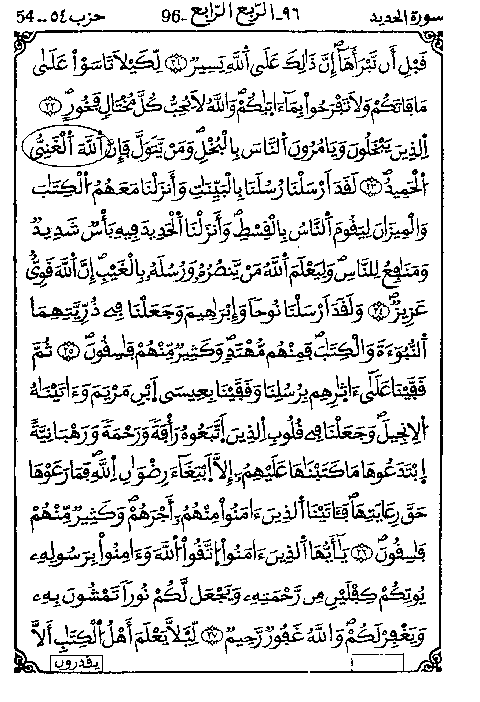 سورة الحديد ٩٦- الرّبع الرّابع -96 حزب ٥٤ .. 54
قَبْلِ أَن نَّبْرَأَهَا إِنَّ ذَٰلِكَ عَلَى اَللَّهِ يَسِيرٌ ٢١ لِّكَيْلَا تَاسَوْاْ عَلَىٰ
مَا فَاتَكُمْ وَلَا تَفْرَحُواْ بِمَا ءَاتٜيٰكُمْ وَاللَّهُ لَا يُحِبُّ كُلَّ مُخْتَالٍ فَخُورٍ ٢٢
اِلذِينَ يَبْخَلُونَ وَيَامُرُونَ اَلنَّاسَ بِالْبُخْلِ وَمَنْ يَّتَوَلَّ فَإِنَّ اَللَّهَ اَلْغَنِيُّ
اُلْحَمِيدُ ٢٣ لَقَدَ اَرْسَلْنَا رُسُلَنَا بِالْبَيِّنَٰتِ وَأَنزَلْنَا مَعَهُمُ اُلْكِتَٰبَ
وَالْمِيزَانَ لِيَقُومَ اَلنَّاسُ بِالْقِسْطِ وَأَنزَلْنَا اَلْحَدِيدَ فِيهِ بَأْسٌ شَدِيدٌ
وَمَنَٰفِعُ لِلنَّاسِ وَلِيَعْلَمَ اَللَّهُ مَنْ يَّنصُرُهُۥ وَرُسُلَهُۥ بِالْغَيْبِ إِنَّ اَللَّهَ قَوِيٌّ
عَزِيزٌ ٢٤ وَلَقَدَ اَرْسَلْنَا نُوحاً وَإِبْرَٰهِيمَ وَجَعَلْنَا فِے ذُرِّيَّتِهِمَا
اَلنُّبُوٓءَةَ وَالْكِتَٰبَ فَمِنْهُم مُّهْتَدٍ وَكَثِيرٌ مِّنْهُمْ فَٰسِقُونَ ٢٥ ثُمَّ
قَفَّيْنَا عَلَىٰ ءَاثٰرِهِم بِرُسُلِنَا وَقَفَّيْنَا بِعِيسَى اَبْنِ مَرْيَمَ وَءَاتَيْنَٰهُ
اُلِانجِيلَ وَجَعَلْنَا فِے قُلُوبِ اِلذِينَ اَتَّبَعُوهُ رَأْفَةً وَرَحْمَةً وَرَهْبَانِيَّةً
اِبْتَدَعُوهَا مَا كَتَبْنَٰهَا عَلَيْهِمُۥٓ إِلَّا اَبْتِغَآءَ رِضْوَٰنِ اِللَّهِ فَمَا رَعَوْهَا
حَقَّ رِعَايَتِهَا فَـَٔاتَيْنَا اَلذِينَ ءَامَنُواْ مِنْهُمُۥٓ أَجْرَهُمْ وَكَثِيرٌ مِّنْهُمْ
فَٰسِقُونَ ٢٦ يَٰٓأَيُّهَا اَلذِينَ ءَامَنُواْ اُتَّقُواْ اُللَّهَ وَءَامِنُواْ بِرَسُولِهِۦ
يُوتِكُمْ كِفْلَيْنِ مِن رَّحْمَتِهِۦ وَيَجْعَل لَّكُمْ نُوراً تَمْشُونَ بِهِۦ
وَيَغْفِرْ لَكُمْ وَاللَّهُ غَفُورٌ رَّحِيمٌ ٢٧ لِّيَلَّا يَعْلَمَ أَهْلُ اُلْكِتَٰبِ أَلَّا
يقدرون